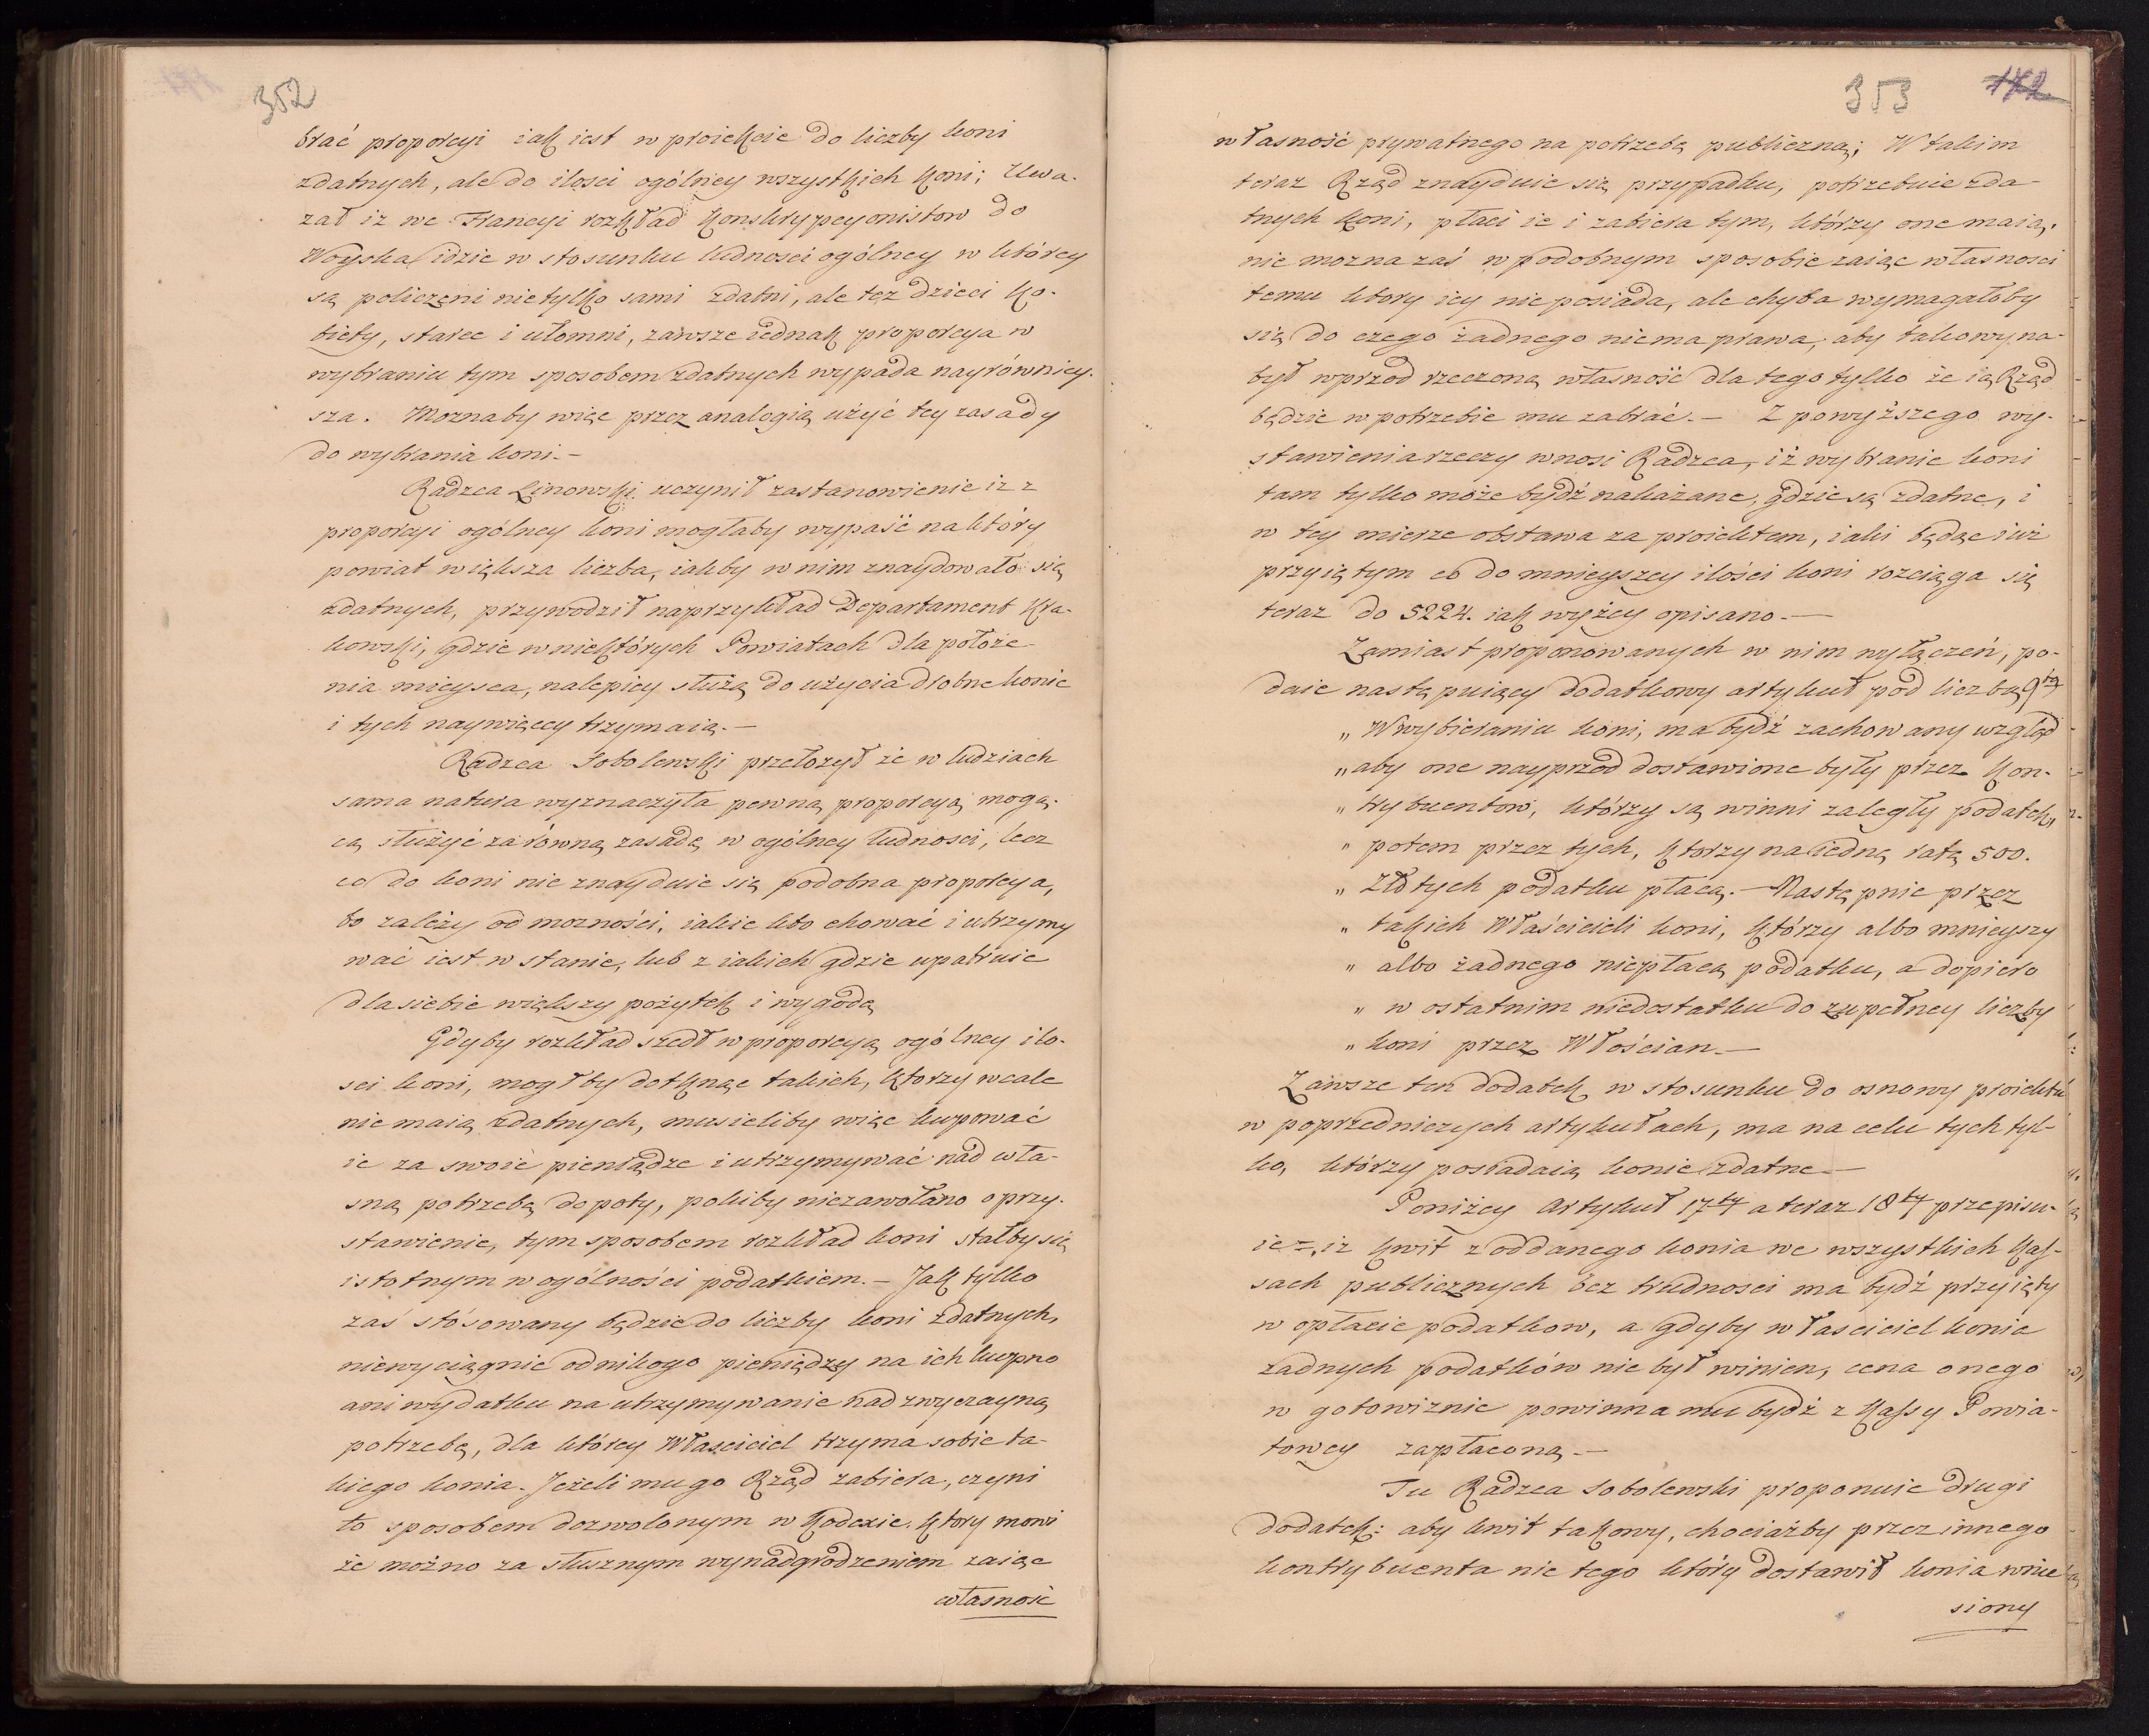 352
brać proporcyi iak iest w proiekcie do liczby koni
zdatnych, ale do ilosci ogólney wszystkich koni; Uwa-
zał iz we Francyi rozkład konskrypcyonistow do
Woyska idzie w stosunku ludnosci ogólney w którey
są policzeni nietylko sami zdatni, ale też dzieci ko-
biety, starce i ułomni, zawsze iednak proporcya w
wybraniu tym sposobem zdatnych wypada nayrówniey-
sza. Moznaby więc przez analogią użyć tey zasady
do wybrania koni.—
Radzca Linowski uczynił zastanowienie iz z
proporcyi ogólney koni mogłaby wypaść na który
powiat większa liczba, iakby w nim znaydowało się
zdatnych, przywodził naprzykład Departament Kra-
kowski, gdzie w niektórych Powiatach dla położe
nia mieysca, nalepiey służą do użycia drobne konie
i tych naywięcey trzymaią.—
Radzca Sobolewski przełozył że w ludziach
sama natura wyznaczyła pewną proporcyą mogą-
cą służyć za równą zasadę w ogólney ludnosci, lecz
co do koni nie znayduie się podobna proporcya,
bo zależy od mozności, iakie kto chować i utrzymy
wać iest w stanie, lub z iakich gdzie upatruie
dla siebie większy pożytek i wygodę
Gdyby rozkład szedł w proporcyą ogólney ilo-
sci koni, mogłby dotknąc takich, ktorzy wcale
nie maią zdatnych, musieliby więc kupować
ie za swoie pieniądze i utrzymywać nad wła-
sną potrzebę dopoty, pokiby niezawołano o przy-
stawienie, tym sposobem rozkład koni stałby się
istotnym w ogólności podatkiem.— Jak tylko
zaś stósowany będzie do liczby koni zdatnych,
niewyciągnie od nikogo pieniędzy na ich kupno
ani wydatku na utrzymywanie nad zwyczayną
potrzebę, dla którey Właściciel trzyma sobie ta-
kiego konia. Jeżeli mu go Rząd zabiera, czyni
to sposobem dozwolonym w Kodexie. ktory mowi
że możno za słusznym wynadgrodzeniem zaiąc
własnosć
353 172
własność prywatnego na potrzebę publiczną; W takim
teraz Rząd znayduie się przypadku, potrzebuie zda
tnych koni, płaci ie i zabiera tym, którzy one maią,
nie mozna zaś w podobnym sposobie zaiąc własnosci
temu ktory iey nie posiada, ale chyba wymagałoby
się do czego żadnego niema prawa, aby takowy na-
był wprzod rzeczoną własność dla tego tylko że ią Rząd
będzie w potrzebie mu zabrać.— Z powyższego wy-
stawienia rzeczy wnosi Radzca, iż wybranie koni
tam tylko może bydź nakazane, gdzie są zdatne, i
w tey mierze obstawa za proiektem, iaki będąc iuż
przyiętym co do mnieyszey ilości koni rozciąga się
teraz do 5224. iak wyżey opisano.—
Zamiast proponowanych w nim wyłączeń, po-
daie następuiący dodatkowy artykuł pod liczbą 9tą
„ W wybieraniu koni, ma bydź zachowany wzgląd
„ aby one nayprzod dostawione były przez kon-
„ trybuentow, którzy są winni zaległy podatek,
„ potem przez tych, ktorzy na iedną ratę 500.
„ Złotych podatku płacą.— Następnie przez
„ takich Właścicieli koni, którzy albo mnieyszy
„ albo żadnego niepłacą podatku, a dopiero
„ w ostatnim niedostatku do zupełney liczby
„ koni przez Włościan.—
Zawsze ten dodatek w stosunku do osnowy proiektu
w poprzedniczych artykułach, ma na celu tych tyl-
ko, którzy posiadaią konie zdatne.—
Poniżey Artykuł 17ty a teraz 18ty przepisu-
ie =, iz kwit z oddanego konia we wszystkich Kas-
sach publicznych bez trudnosci ma bydź przyięty
w opłacie podatkow, a gdyby własciciel konia
żadnych podatków nie był winien, cena onego
w gotowiznie powinna mu bydź z Kassy Powia-
towey zapłaconą.—
Tu Radzca Sobolewski proponuie drugi
dodatek: aby kwit takowy, chociażby przez innego
kontrybuenta nie tego który dostawił konia wnie
siony